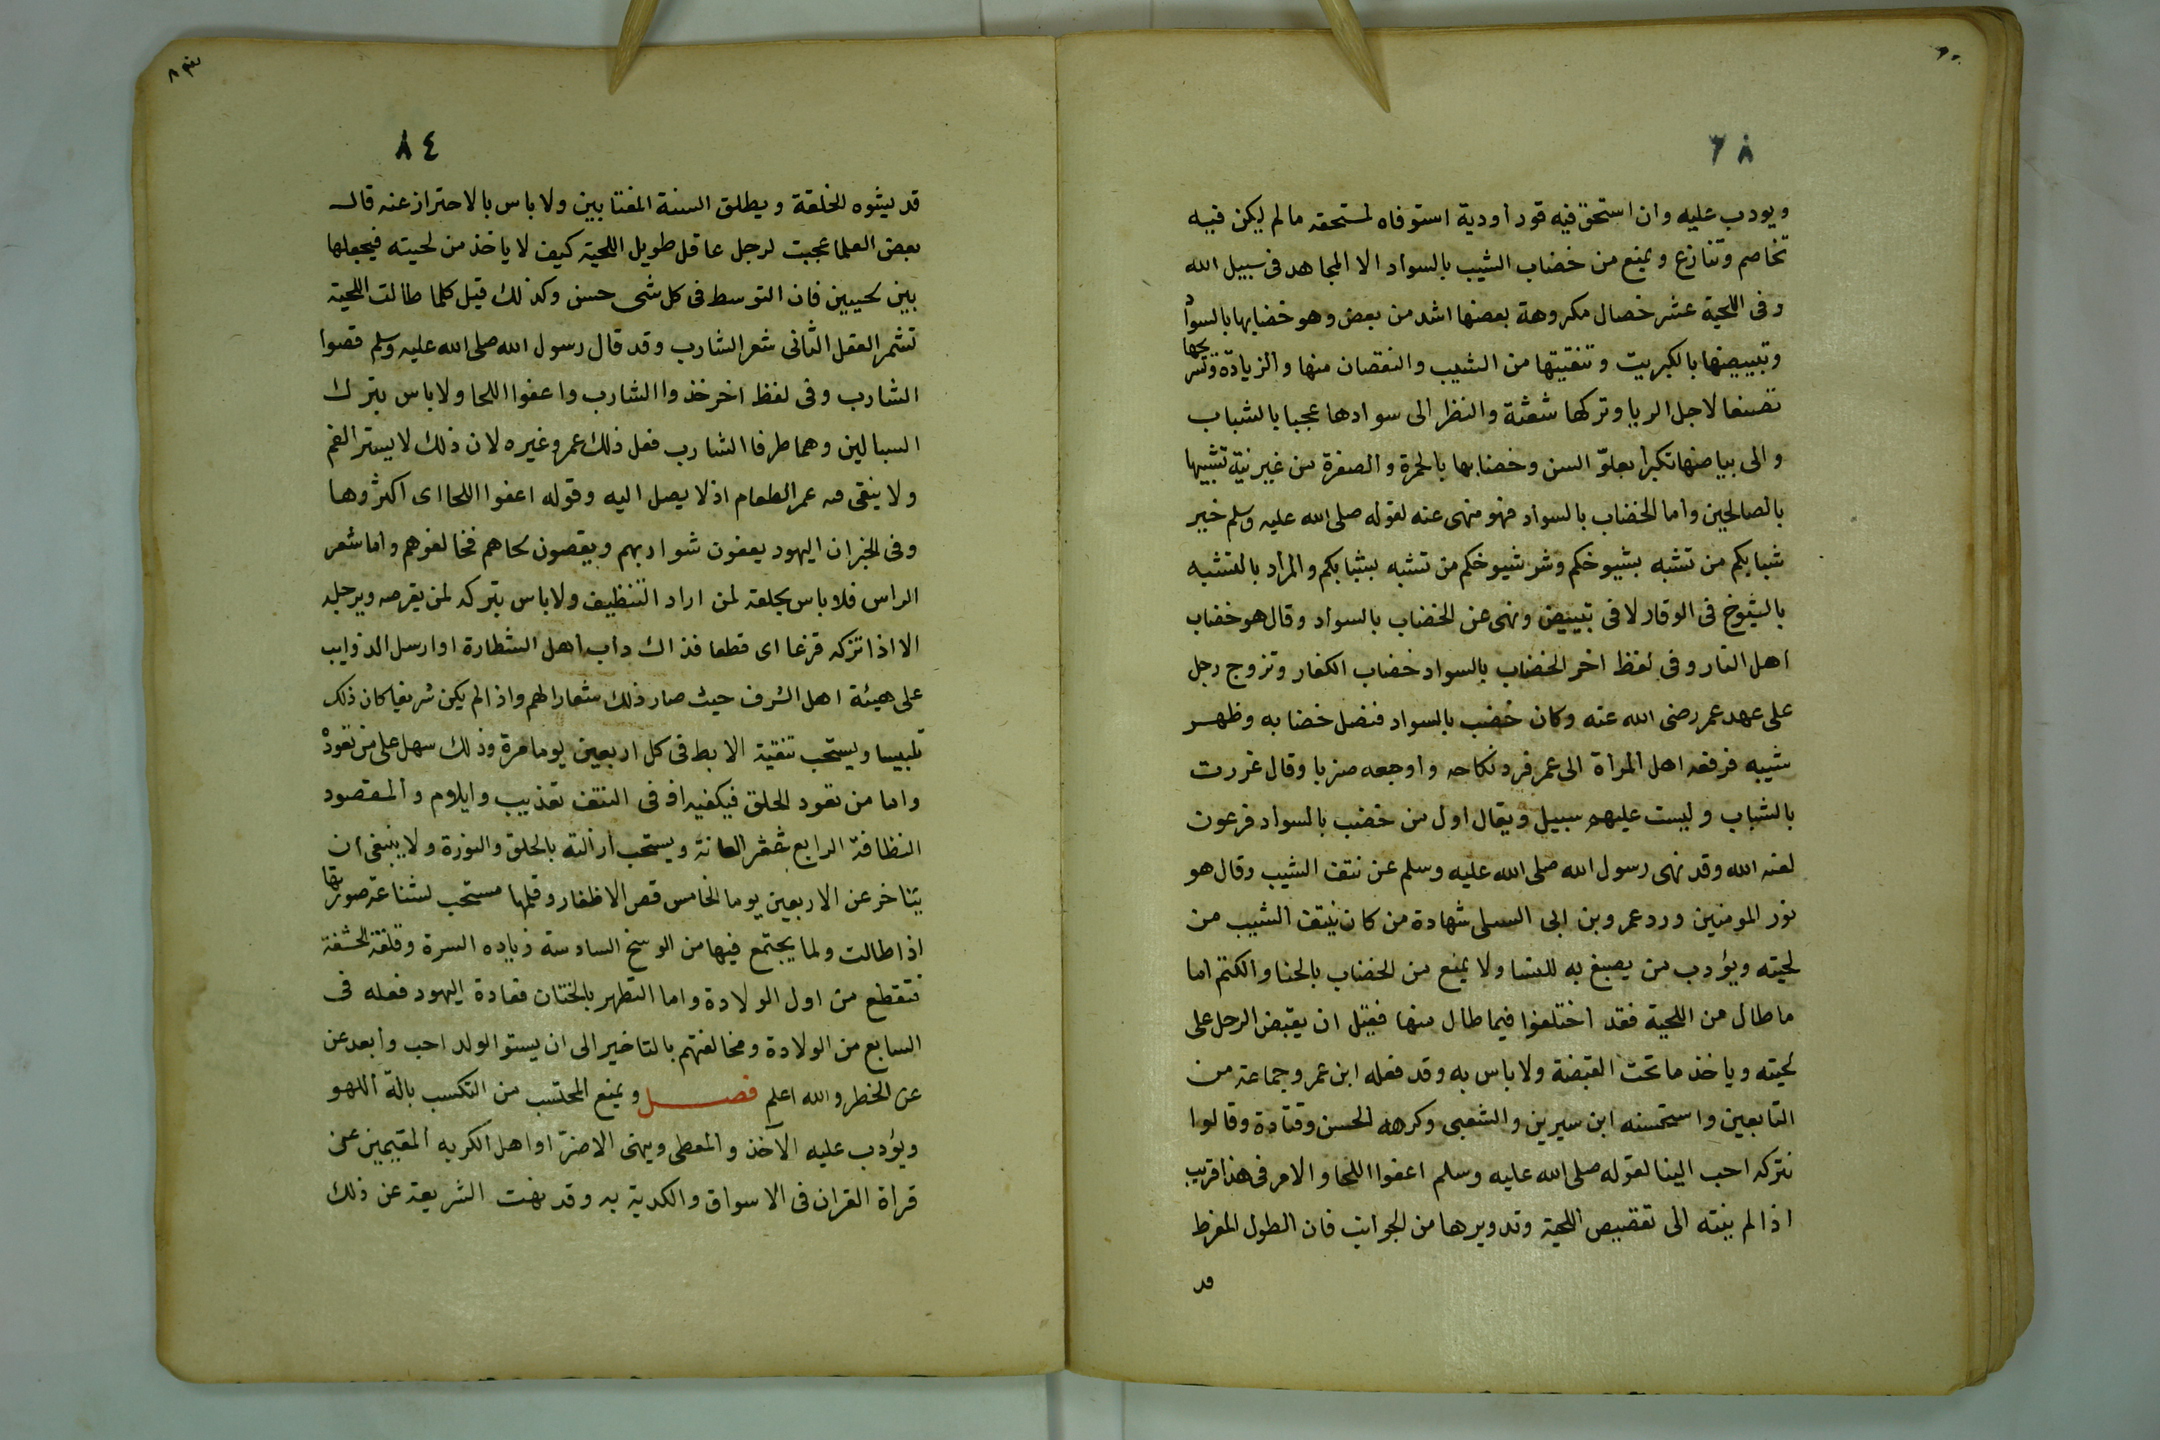 ٦٨
ويودب عليه وان استحق فيه قود اودية استوفاه لمستحقه مالم يكن فيه
تخاصم وتنازع ويمنع من خضاب الشيب بالسواد الا المجاهد فى سبيل الله
وفى اللحية عشر خصال مكروهة بعضها اشد من بعض وهو خضابها بالسواد
وتبييضها بالكبريت وتنقيتها من الشيب والنقصان منها والزيادة وتسريحها
تصنعا لاجل الريا وتركها شعثة والنظر الى سوادها عجبا بالشباب
والى بياضها تكبرا بعلوّ السن وخضابها بالحمرة والصفرة من غير نية تشبيها
بالصالحين واما الخضاب بالسواد فهو منهى عنه لقوله صلى الله عليه وسلم خير
شبابكم من تشبه بشيوخكم وشر شيوخكم من تشبه بشبابكم والمراد بالتشبه
بالشيوخ فى الوقار لا فى تبييض ونهى عن الخضاب بالسواد وقال هو خضاب
اهل النار وفى لفظ اخر الخضاب بالسواد خضاب الكفار وتزوج رجل
على عهد عمر رضى الله عنه وكان خضب بالسواد فنصل خضابه وظهر
شيبه فرفعه اهل المراة الى عمر فرد نكاحه واوجعه ضربا وقال غررت
بالشباب ولبست عليهم سبيل ويقال اول من خضب بالسواد فرعون
لعنه الله وقد نهى رسول الله صلى الله عليه وسلم عن نتف الشيب وقال هو
نور المومنين ورد عمر وبن ابى السلى شهادة من كان ينتف الشيب من
لحيته ويؤدب من يصبغ به للنسا ولا يمنع من الخضاب بالحنا والكتم اما
ما طال من اللحية فقد اختلفوا فيما طال منها فقيل ان يقبض الرجل على
لحيته وياخذ ما تحت القبضة ولا باس به وقد فعله ابن عمر وجماعة من
التابعين واستحسنه ابن سيرين والشعبى وكرهه الحسن وقتادة وقالوا
نتركه احب الينا لقوله صلى الله عليه وسلم اعفوا اللحا والامر فى هذا قريب
اذا لم ينته الى تقصيص اللحية وتدويرها من الجوانب فان الطول المفرط
قد
٨٤
قد يشوه الخلقة ويطلق السنة المغتابين ولا باس بالاحتراز عنه قال
بعض العلما عجبت لرجل عاقل طويل اللحية كيف لا ياخذ من لحيته فيجعلها
بين لحيين فان التوسط فى كل شى حسن وكذلك قيل كلما طالت اللحية
تشمر العقل الثانى شعر الشارب وقد قال رسول الله صلى الله عليه وسلم قصوا
الشارب وفى لفظ اخر خذوا الشارب واعفوا اللحا ولا باس بترك
السبالين وهما طرفا الشارب فعل ذلك عمر وغيره لان ذلك لا يستر الفم
ولا يبقى فيه غمر الطعام اذ لا يصل اليه وقوله اعفوا اللحا اى اكثروها
وفى الخبر ان اليهود يعفون شواربهم ويقصون لحاهم فخالفوهم واما شعر
الراس فلا باس بحلقه لمن اراد التنظيف ولا باس بتركه لمن يقرصه ويرجله
الا اذا تركه قزعا اى قطعا فذاك داب اهل الشطارة او ارسل الذوايب
على هيئة اهل الشرف حيث صار ذلك شعارا لهم واذا لم يكن شريفا كان ذلك
تلبيسا ويستحب تنقية الابط فى كل اربعين يوما مرة وذلك سهل على من تعوده
واما من تعود الحلق فيكفيه اذ فى النتف تعذيب وايلام والمقصود
النظافة الرابع شعر العانة ويستحب ازالته بالحلق والنورة ولا ينبغى ان
يتاخر عن الاربعين يوما الخامس قص الاظفار وقلمها مستحب لشناعة صورتها
اذا طالت ولما يجتمع فيها من الوسخ السادسة زياده السرة وقلفة الحشفة
فتقطع من اول الولادة واما التطهر بالختان فعادة اليهود فعله فى
السابع من الولادة ومخالفتهم بالتاخير الى ان يستو الولد احب وابعد عن
عن الخطر والله اعلم فصل ويمنع المحتسب من التكسب بالة اللهو
ويؤدب عليه الآخذ والمعطى وينهى الاضرّ او اهل الكريه المقيمين عن
قراة القران فى الاسواق والكدية به وقد نهت الشريعة عن ذلك